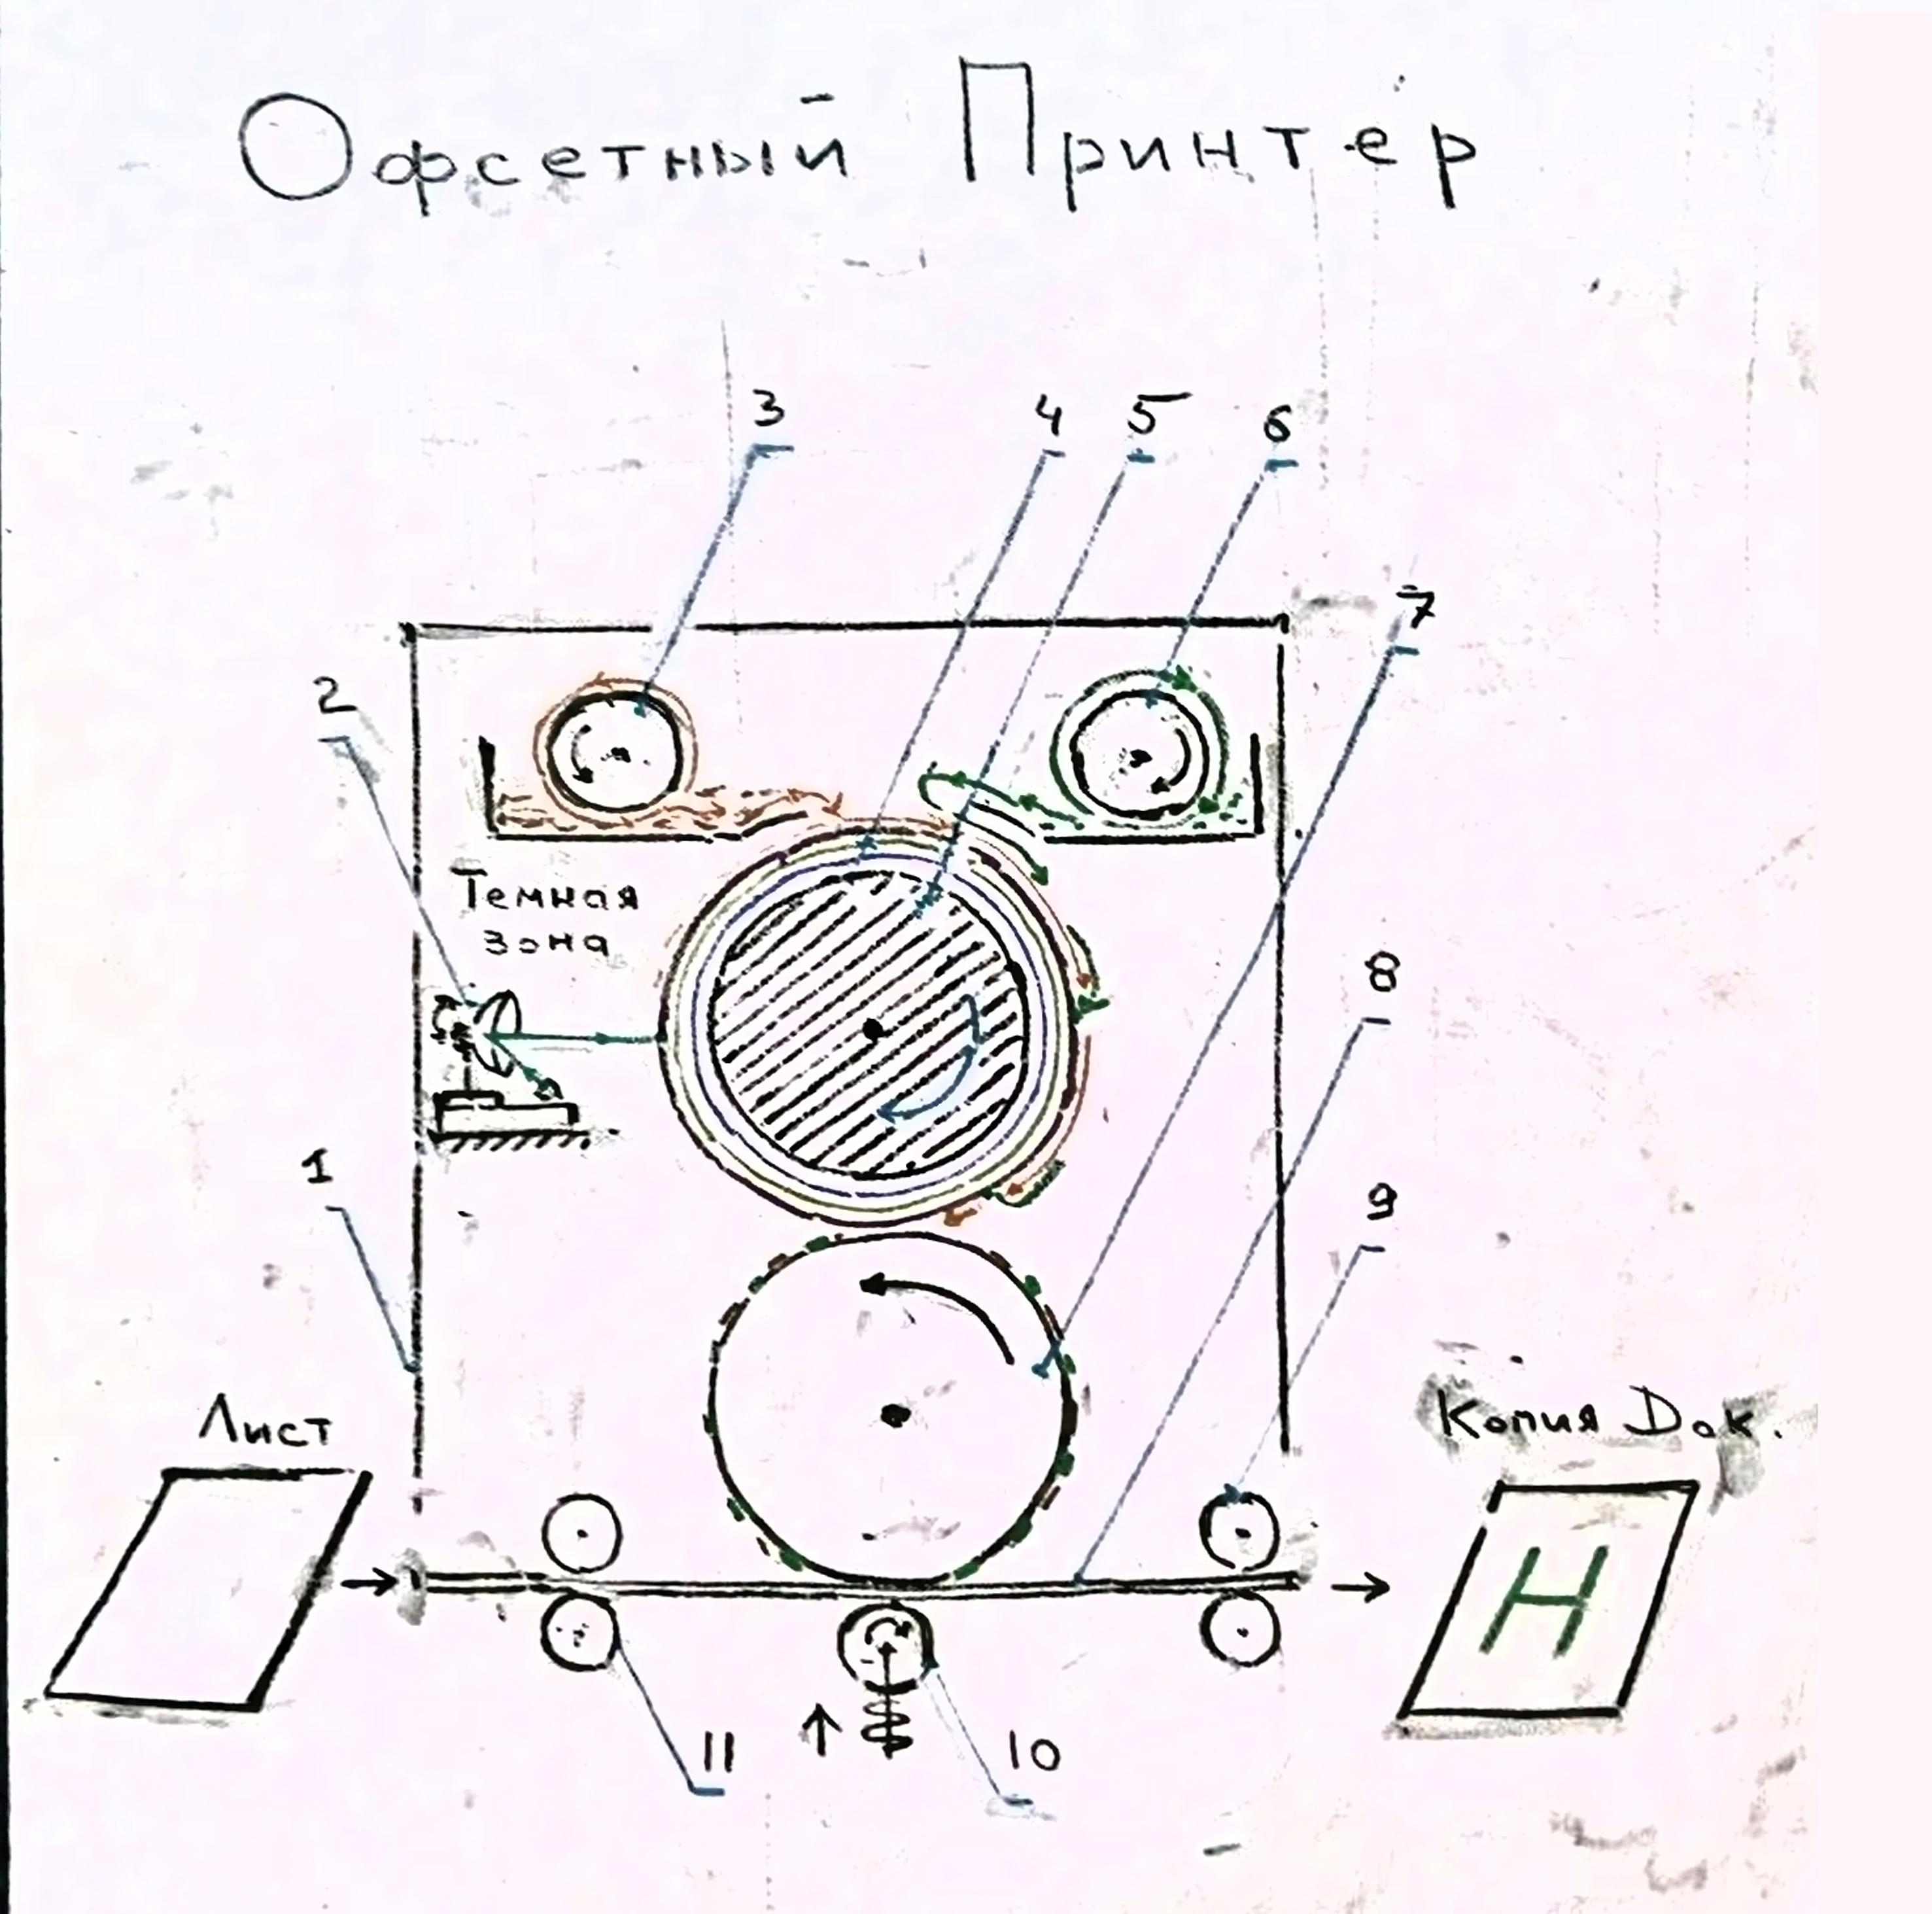 Офсетный Принтер
3
4
5
6
7
2
Темная
зона
8
1
9
Лист
Копия Док.
Н
11
10